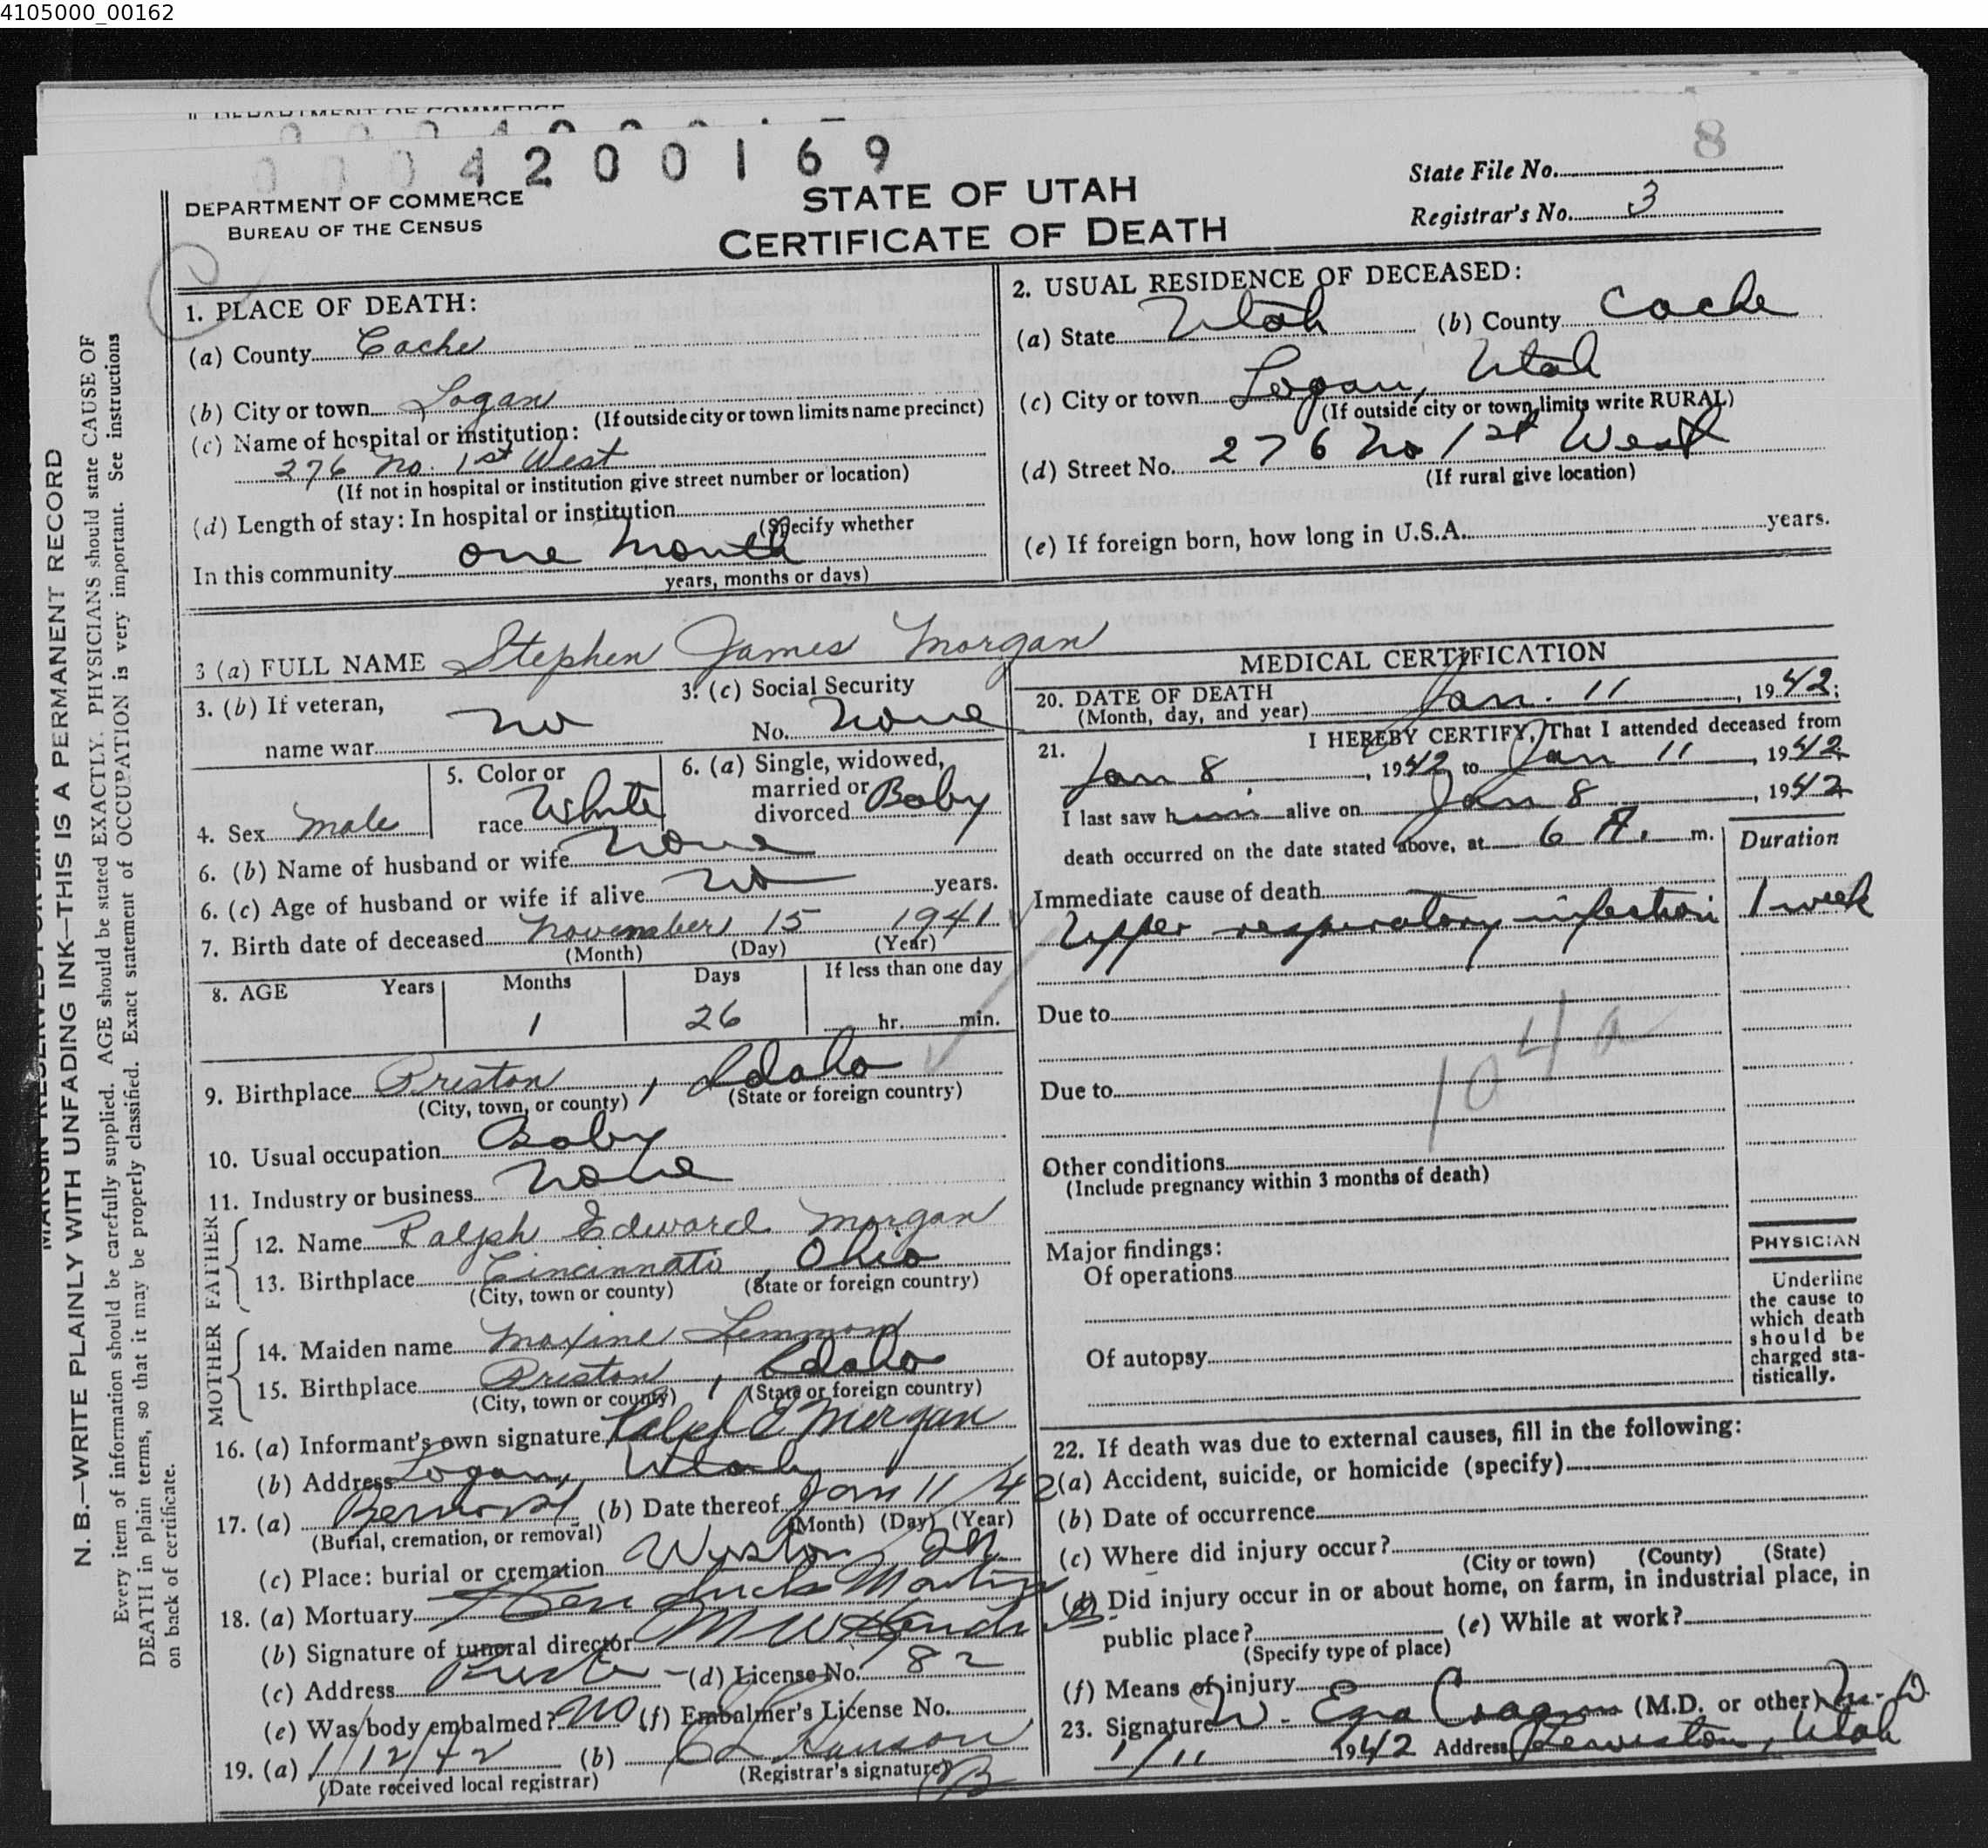 4105000_00162
0004200169
8
State File No.
DEPARTMENT OF COMMERCE
BUREAU OF THE CENSUS
STATE OF UTAH
CERTIFICATE OF DEATH
Registrar's No. 3
1. PLACE OF DEATH:
(a) County Cache
(b) City or town Logan
(If outside city or town limits name precinct)
(c) Name of hospital or institution:
276 No. 1st West
(If not in hospital or institution give street number or location)
(d) Length of stay: In hospital or institution
(Specify whether
In this community one month
years, months or days)
2. USUAL RESIDENCE OF DECEASED:
(a) State Utah (b) County Cache
(c) City or town Logan, Utah
(If outside city or town limits write RURAL)
(d) Street No. 276 No 1st West
(If rural give location)
(e) If foreign born, how long in U.S.A. years.
3 (a) FULL NAME Stephen James Morgan
3. (b) If veteran,
name war no
3. (c) Social Security
No. None
4. Sex Male
5. Color or
race White
6. (a) Single, widowed,
married or
divorced Baby
6. (b) Name of husband or wife None
6. (c) Age of husband or wife if alive no years.
7. Birth date of deceased November 15 1941
(Month) (Day) (Year)
8. AGE Years Months Days If less than one day
1 26 hr. min.
9. Birthplace Preston, Idaho
(City, town, or county) (State or foreign country)
10. Usual occupation Baby
11. Industry or business None
FATHER
12. Name Ralph Edward Morgan
13. Birthplace Cincinnati, Ohio
(City, town or county) (State or foreign country)
MOTHER
14. Maiden name Maxine Lemmond
15. Birthplace Preston, Idaho
(City, town or county) (State or foreign country)
16. (a) Informant's own signature Ralph E Morgan
(b) Address Logan, Utah
17. (a) (b) Date thereof Jan 11/42
(Burial, cremation, or removal) (Month) (Day) (Year)
(c) Place: burial or cremation Weston
18. (a) Mortuary
(b) Signature of funeral director M W
(c) Address (d) License No. 82
(e) Was body embalmed? No (f) Embalmer's License No.
19. (a) 1/12/42 (b) Hanson
(Date received local registrar) (Registrar's signature)
MEDICAL CERTIFICATION
20. DATE OF DEATH
(Month, day, and year) Jan. 11, 1942;
21. I HEREBY CERTIFY, That I attended deceased from
Jan 8, 1942 to Jan 11, 1942
I last saw him alive on Jan 8, 1942
death occurred on the date stated above, at 6 A. m.
Duration
Immediate cause of death
Upper respiratory infection 1 week
Due to
104a
Due to
Other conditions
(Include pregnancy within 3 months of death)
Major findings:
Of operations
Of autopsy
PHYSICIAN
Underline
the cause to
which death
should be
charged sta-
tistically.
22. If death was due to external causes, fill in the following:
(a) Accident, suicide, or homicide (specify)
(b) Date of occurrence
(c) Where did injury occur?
(City or town) (County) (State)
(d) Did injury occur in or about home, on farm, in industrial place, in
public place? (e) While at work?
(Specify type of place)
(f) Means of injury
23. Signature W. Ezra Cragun (M.D. or other) M.D.
1/11 1942 Address Lewiston, Utah
N. B.—WRITE PLAINLY WITH UNFADING INK—THIS IS A PERMANENT RECORD
Every item of information should be carefully supplied. AGE should be stated EXACTLY. PHYSICIANS should state CAUSE OF
DEATH in plain terms, so that it may be properly classified. Exact statement of OCCUPATION is very important. See instructions
on back of certificate.